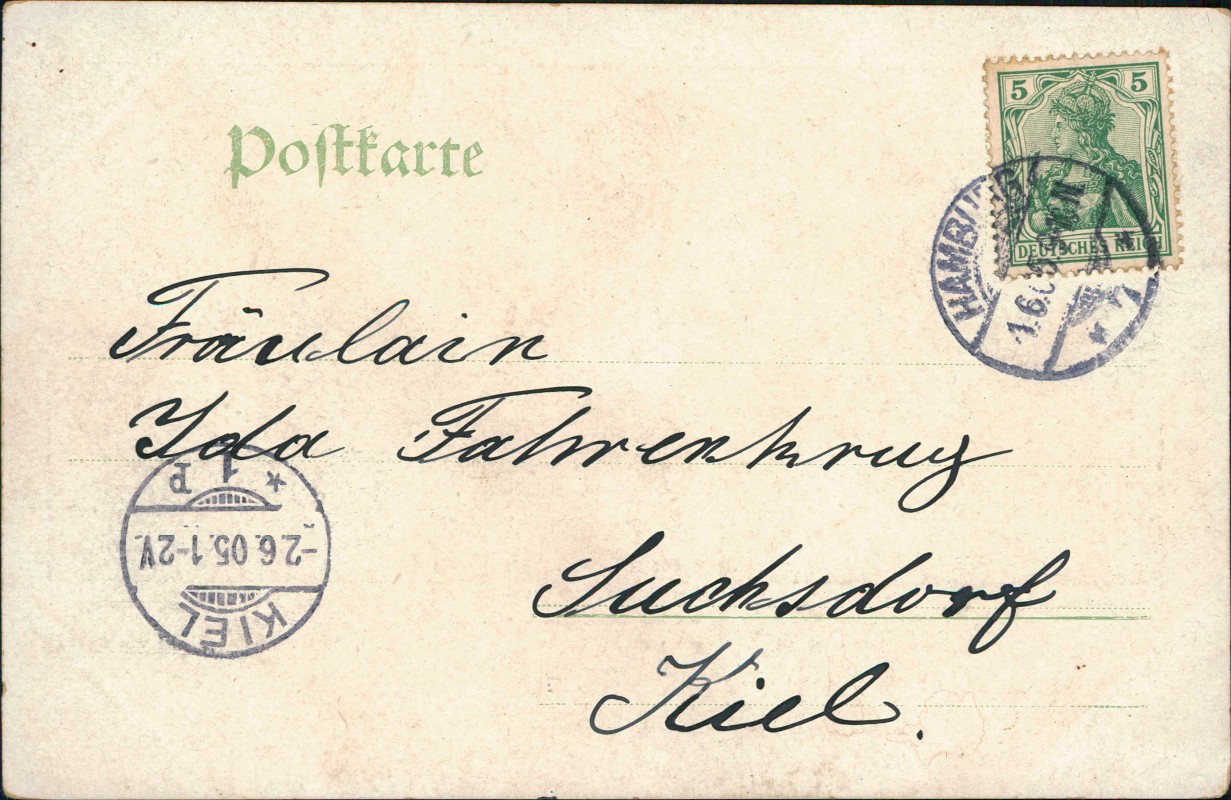 Postkarte
5 5
DEUTSCHES REICH
HAMBURG
1.6.05
1
Fräulain
Ida Fahrenkrug
Suchsdorf
Kiel.
KIEL
-2.6.05.1-2V.
1 P